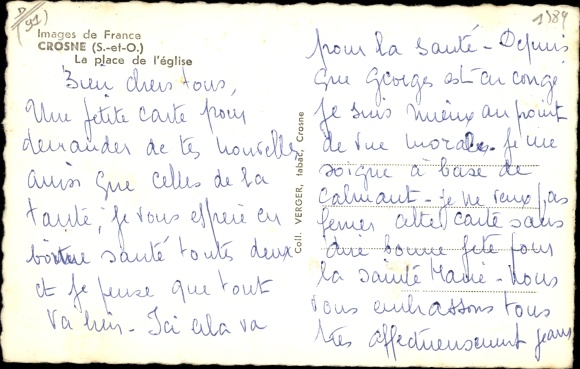 D
(91)
1984
Images de France
CROSNE (S.-et-O.)
La place de l'église
Bien chers tous,
Une petite carte pour
demander de tes nouvelles
ainsi que celles de la
tante, je vous espère en
bonne santé toutes deux
et je pense que tout
va bien - Ici cela va
Coll. VERGER, tabac, Crosne
pour la santé - Depuis
que Georges est en congé
je suis mieux au point
de vue morale. Je me
soigne à base de
calmant - je ne veux pas
fermer cette carte sans
dire bonne fête pour
la sainte Marie - Nous
vous embrassons tous
très affectueusement